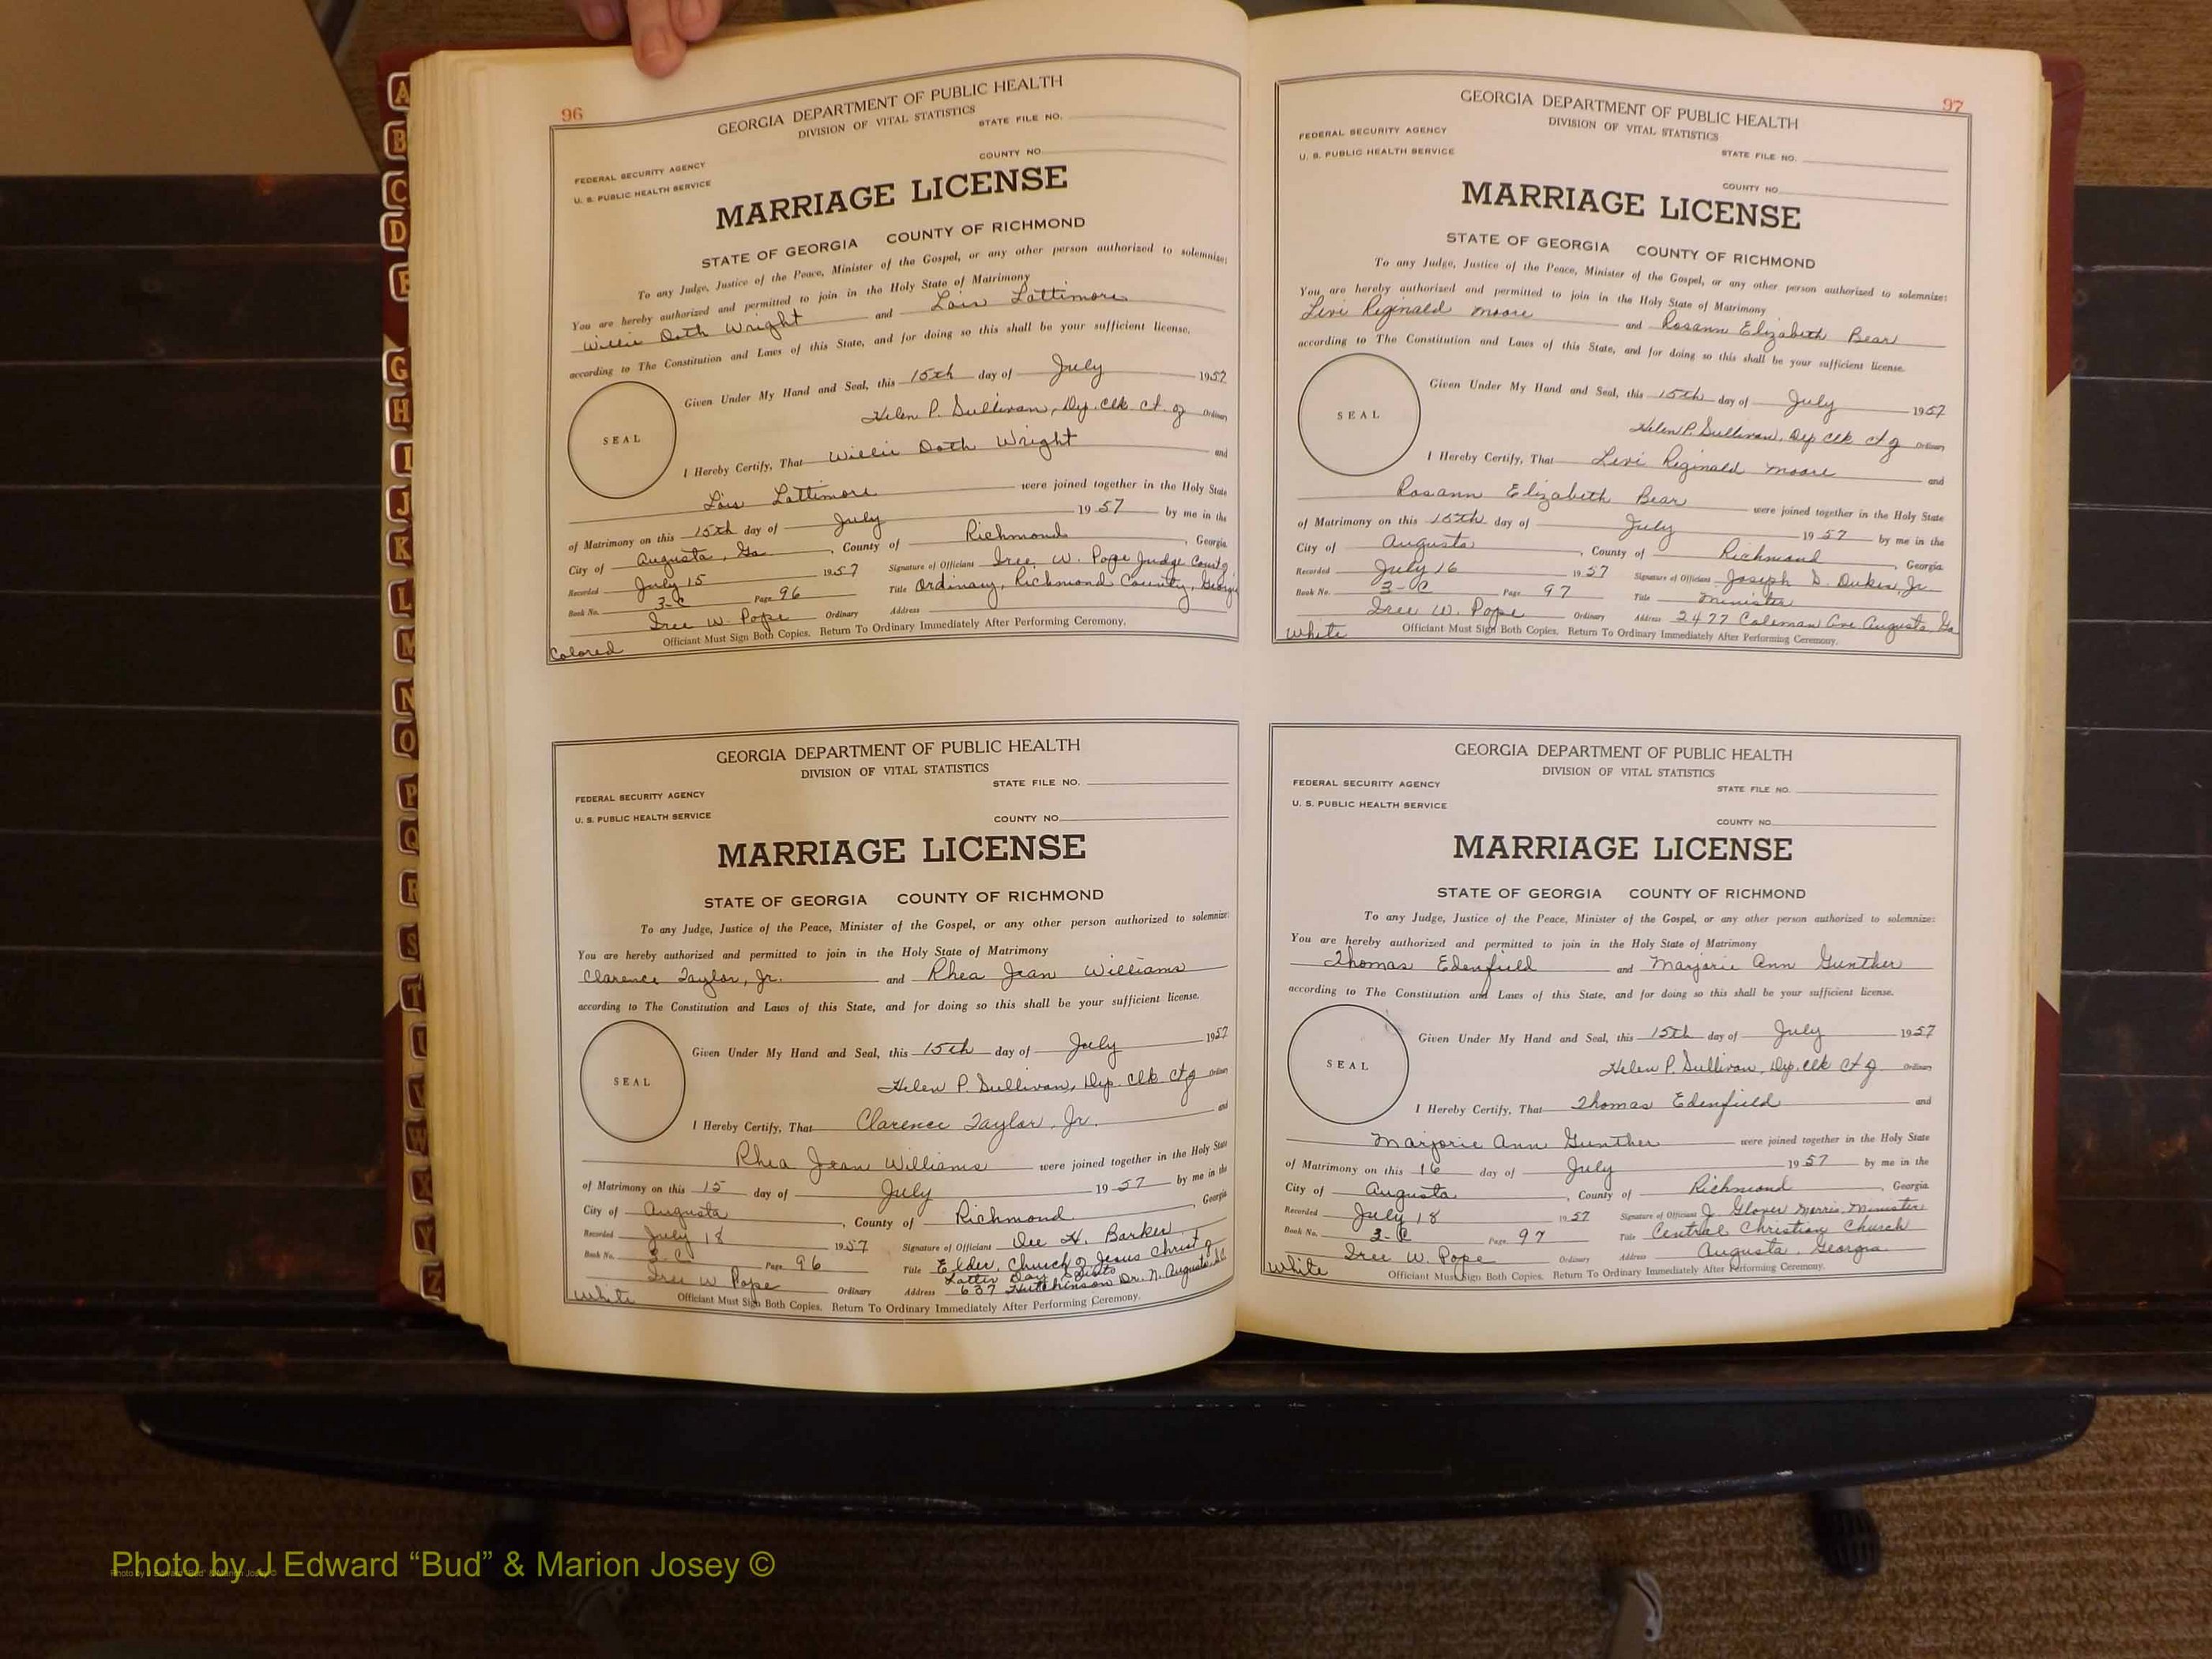 96
GEORGIA DEPARTMENT OF PUBLIC HEALTH
DIVISION OF VITAL STATISTICS
STATE FILE NO.
FEDERAL SECURITY AGENCY
U. S. PUBLIC HEALTH SERVICE
COUNTY NO.
MARRIAGE LICENSE
STATE OF GEORGIA COUNTY OF RICHMOND
To any Judge, Justice of the Peace, Minister of the Gospel, or any other person authorized to solemnize:
You are hereby authorized and permitted to join in the Holy State of Matrimony
Willie Doth Wright and Lois Lattimore
according to The Constitution and Laws of this State, and for doing so this shall be your sufficient license.
Given Under My Hand and Seal, this 15th day of July 1957
SEAL
Helen P. Sullivan, Dy. Clk. Ct. of Ordinary
I Hereby Certify, That Willie Doth Wright and
Lois Lattimore were joined together in the Holy State
of Matrimony on this 15th day of July 1957 by me in the
City of Augusta, Ga, County of Richmond, Georgia.
Recorded July 15 1957 Signature of Officiant Iree. W. Pope Judge Court of
Book No. 3-C Page 96 Title Ordinary, Richmond County, Georgia
Iree W. Pope Ordinary Address
Officiant Must Sign Both Copies. Return To Ordinary Immediately After Performing Ceremony.
Colored
GEORGIA DEPARTMENT OF PUBLIC HEALTH
DIVISION OF VITAL STATISTICS
STATE FILE NO.
FEDERAL SECURITY AGENCY
U. S. PUBLIC HEALTH SERVICE
COUNTY NO.
MARRIAGE LICENSE
STATE OF GEORGIA COUNTY OF RICHMOND
To any Judge, Justice of the Peace, Minister of the Gospel, or any other person authorized to solemnize:
You are hereby authorized and permitted to join in the Holy State of Matrimony
Clarence Taylor, Jr. and Rhea Jean Williams
according to The Constitution and Laws of this State, and for doing so this shall be your sufficient license.
Given Under My Hand and Seal, this 15th day of July 1957
SEAL
Helen P. Sullivan, Dy. Clk Ct of Ordinary
I Hereby Certify, That Clarence Taylor, Jr. and
Rhea Jean Williams were joined together in the Holy State
of Matrimony on this 15 day of July 1957 by me in the
City of Augusta, County of Richmond, Georgia
Recorded July 18 1957 Signature of Officiant Dee H. Barker
Book No. 3-C Page 96 Title Elder, Church of Jesus Christ of
Latter Day Saints
Iree W Pope Ordinary Address 637 Hutchinson Dr. N. Augusta, SC
Officiant Must Sign Both Copies. Return To Ordinary Immediately After Performing Ceremony.
White
97
GEORGIA DEPARTMENT OF PUBLIC HEALTH
DIVISION OF VITAL STATISTICS
FEDERAL SECURITY AGENCY
U. S. PUBLIC HEALTH SERVICE
STATE FILE NO.
COUNTY NO.
MARRIAGE LICENSE
STATE OF GEORGIA COUNTY OF RICHMOND
To any Judge, Justice of the Peace, Minister of the Gospel, or any other person authorized to solemnize:
You are hereby authorized and permitted to join in the Holy State of Matrimony
Levi Reginald Moore and Rosann Elizabeth Bear
according to The Constitution and Laws of this State, and for doing so this shall be your sufficient license.
Given Under My Hand and Seal, this 15th day of July 1957
SEAL
Helen P. Sullivan, Dep Clk Ct of Ordinary
I Hereby Certify, That Levi Reginald Moore and
Rosann Elizabeth Bear were joined together in the Holy State
of Matrimony on this 15th day of July 1957 by me in the
City of Augusta, County of Richmond, Georgia
Recorded July 16 1957 Signature of Officiant Joseph S. Dukes, Jr
Book No. 3-C Page 97 Title Minister
Iree W. Pope Ordinary Address 2477 Coleman Ave Augusta, Ga
Officiant Must Sign Both Copies. Return To Ordinary Immediately After Performing Ceremony.
White
GEORGIA DEPARTMENT OF PUBLIC HEALTH
DIVISION OF VITAL STATISTICS
FEDERAL SECURITY AGENCY
STATE FILE NO.
U. S. PUBLIC HEALTH SERVICE
COUNTY NO.
MARRIAGE LICENSE
STATE OF GEORGIA COUNTY OF RICHMOND
To any Judge, Justice of the Peace, Minister of the Gospel, or any other person authorized to solemnize:
You are hereby authorized and permitted to join in the Holy State of Matrimony
Thomas Edenfield and Marjorie Ann Gunther
according to The Constitution and Laws of this State, and for doing so this shall be your sufficient license.
Given Under My Hand and Seal, this 15th day of July 1957
SEAL
Helen P. Sullivan, Dy. Clk Ct of Ordinary
I Hereby Certify, That Thomas Edenfield and
Marjorie Ann Gunther were joined together in the Holy State
of Matrimony on this 16 day of July 1957 by me in the
City of Augusta, County of Richmond, Georgia
Recorded July 18 1957 Signature of Officiant J Glover Morris, Minister
Book No. 3-C Page 97 Title Central Christian Church
Iree W. Pope Ordinary Address Augusta, Georgia
Officiant Must Sign Both Copies. Return To Ordinary Immediately After Performing Ceremony.
White
A
B
C
D
F
G
H
I
J
K
L
M
N
O
P
Q
R
S
T
U
V
W
X
Y
Z
Photo by J Edward “Bud” & Marion Josey ©
Photo by J Edward “Bud” & Marion Josey ©